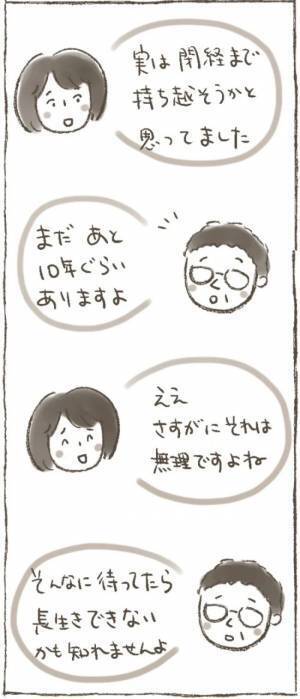 実は閉経まで
持ち越そうかと
思ってました
まだ あと
10年ぐらい
ありますよ
ええ
さすがにそれは
無理ですよね
そんなに待ってたら
長生きできない
かも知れませんよ